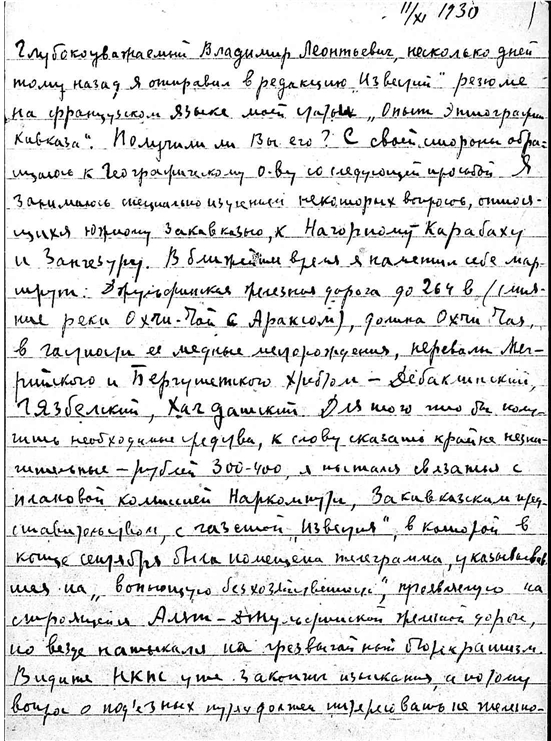 11/XI 1930
Глубокоуважаемый Владимир Леонтьевич, несколько дней
тому назад я отправил в редакцию „Известий" резюме
на французском языке моей статьи „Опыт этнографии
Кавказа". Получили ли Вы его? С своей стороны обра-
щаюсь к Географическому О-ву со следующей просьбой. Я
занимаюсь специально изучением некоторых вопросов, относя-
щихся южному Закавказью, к Нагорному Карабаху
и Зангезуру. В ближайшее время я наметил себе мар-
шрут: Джульфинская железная дорога до 264 в. (слия-
ние реки Охчи-Чай с Араксом), долина Охчи Чая,
в частности ее медные месторождения, перевалы Мег-
рийского и Бергушетского хребтов – Дебаклинский,
Гязбелский, Хачдашский. Для того что бы полу-
чить необходимые средства, к слову сказать крайне незна-
чительные – рублей 300-400, я пытался связаться с
плановой комиссией Наркомпути, Закавказским пред-
ставительством, с газетой „Известия", в которой в
конце сентября была помещена телеграмма, указывав-
шая на „вопиющую бесхозяйственность", проявляемую на
строящейся Алят-Джульфинской железной дороге,
но везде натыкался на чрезвычайный бюрократизм.
Видите НКПС уже закончил изыскания, а потому
вопрос о под'ездных путях должен интересовать не железно-